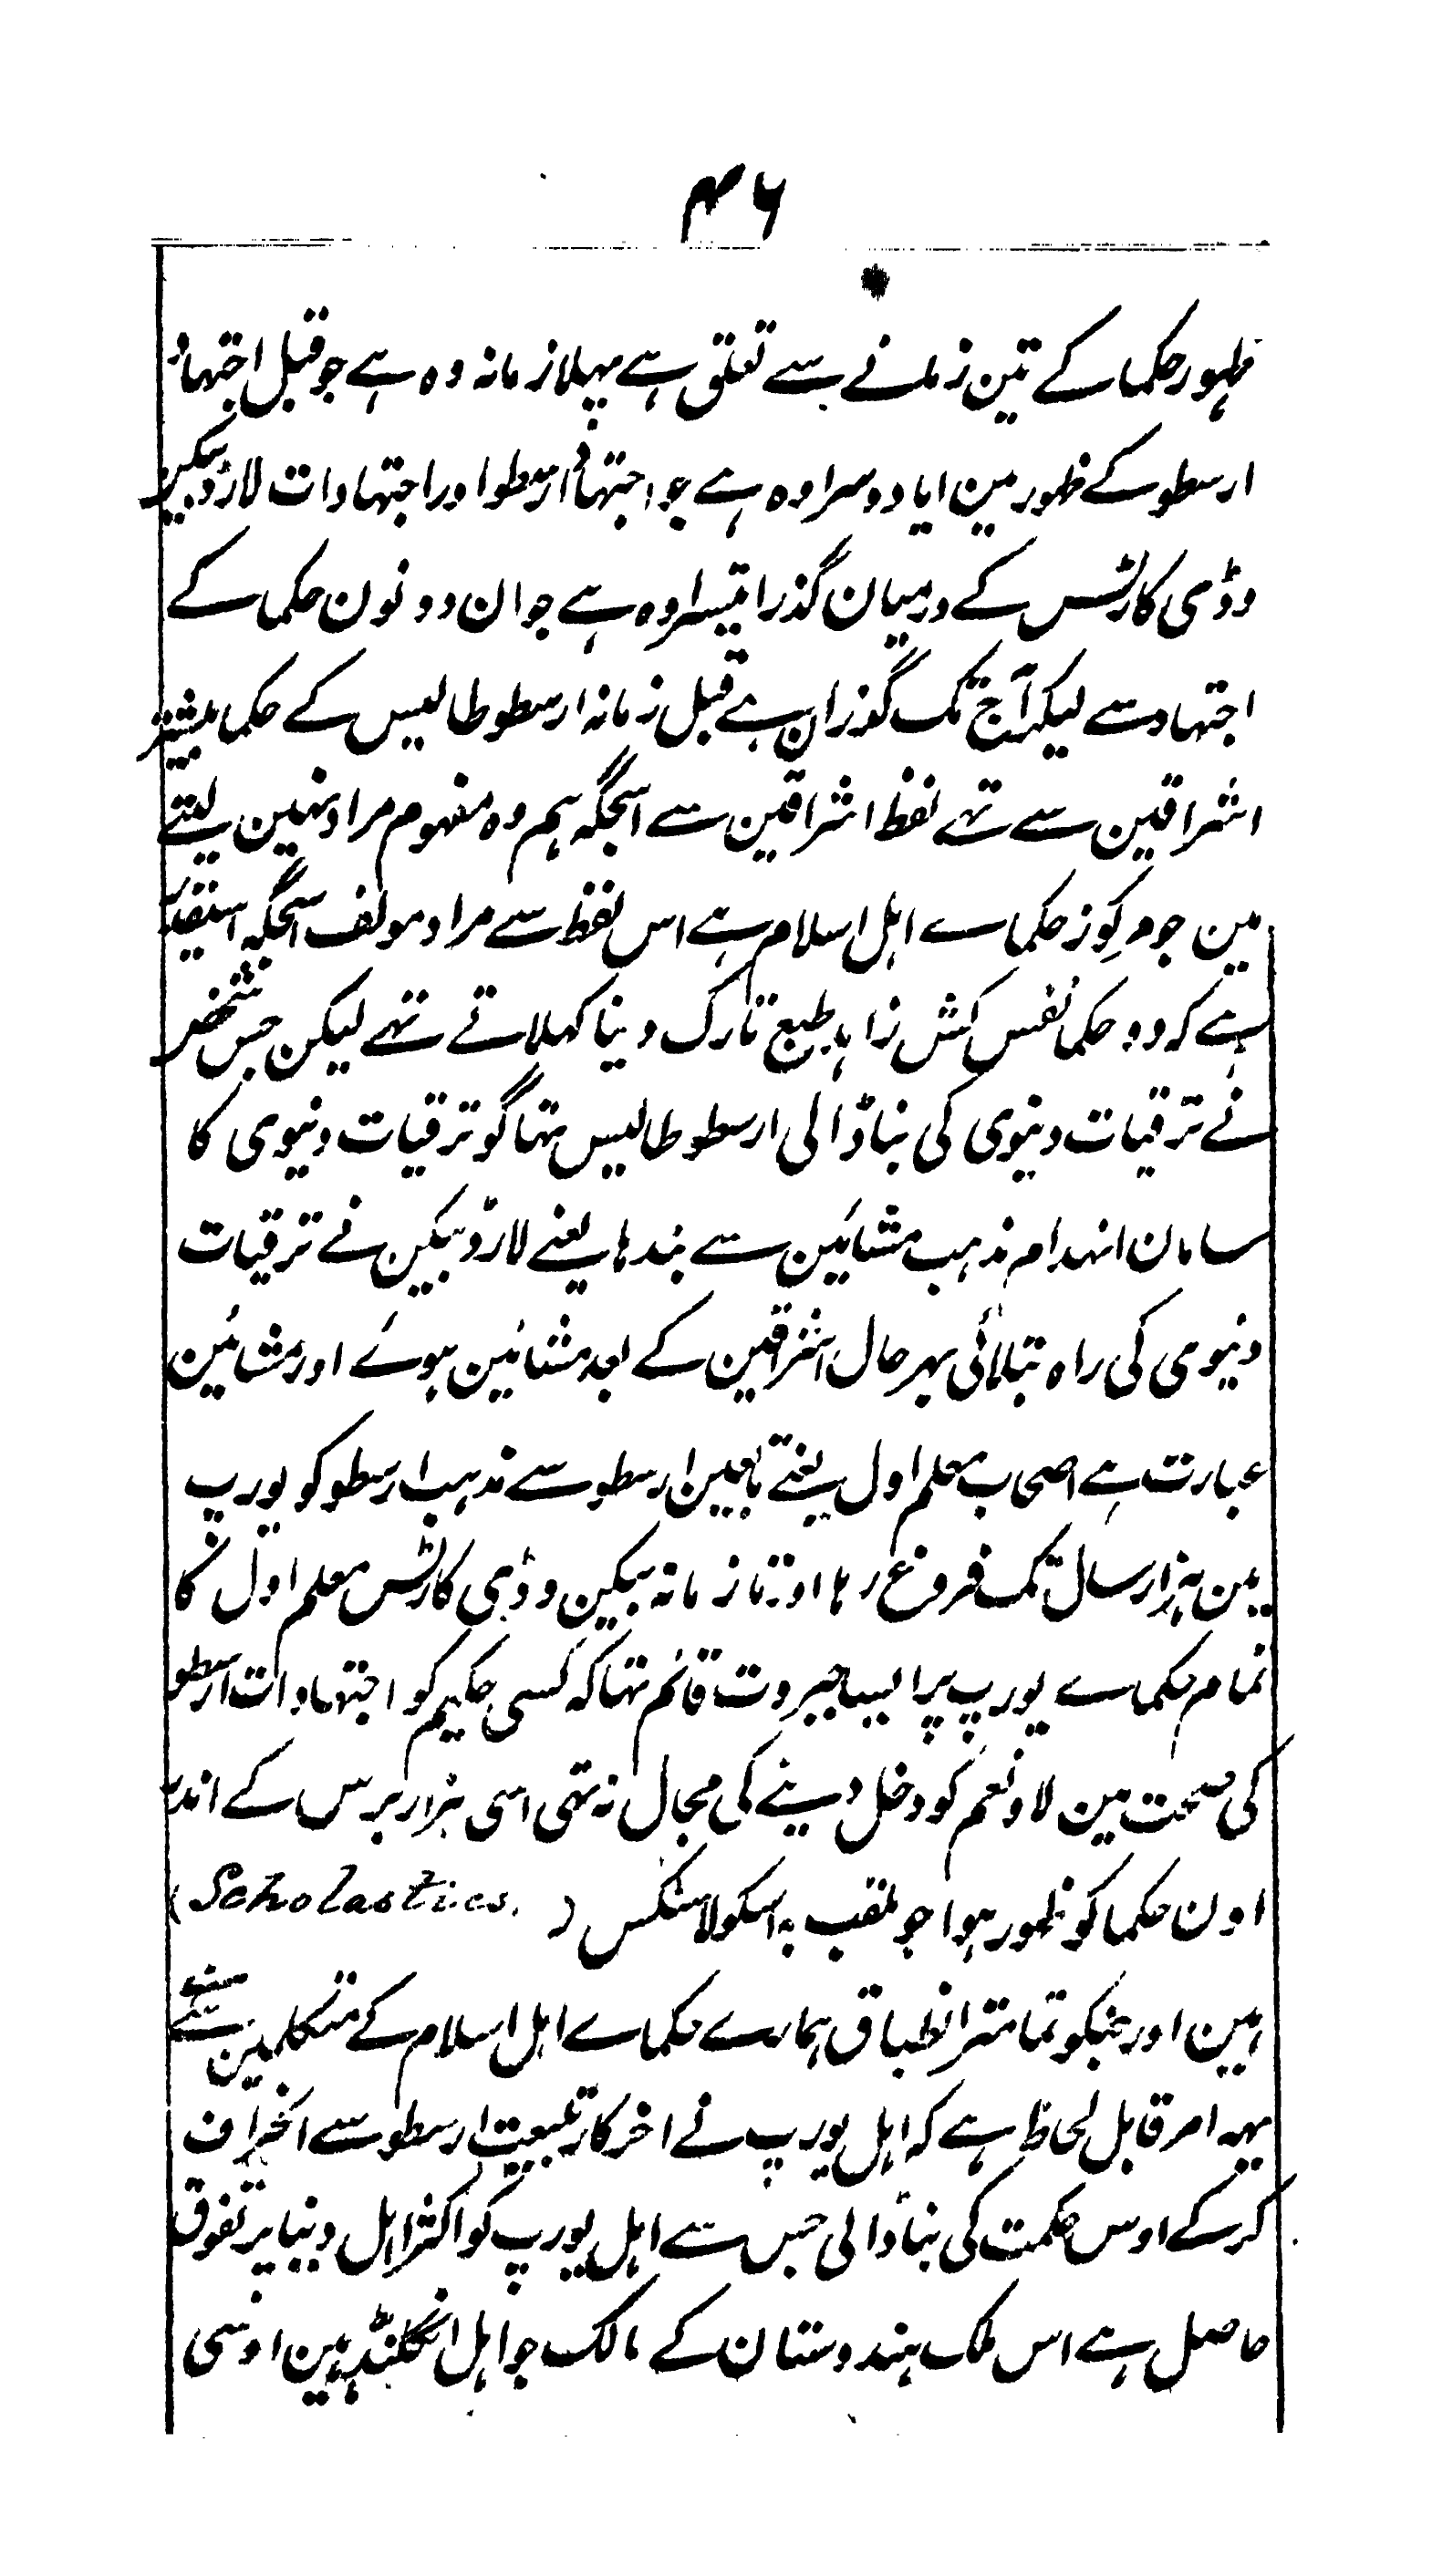 ۴۶
ظہور حکما کے تین زمانے سے تعلق ہے پہلا زمانہ وہ ہے جو قبل اجتہاد
ارسطو کے ظہور مین ایا دوسرا وہ ہے جو اجتہاد ارسطو اور اجتہادات لارڈ بیکن
و ڈی کارٹس کے درمیان گذرا تیسرا وہ ہے جو ان دونون حکما کے
اجتہاد سے لیکر آج تک گذران ہے قبل زمانہ ارسطو طالیس کے حکما بیشتر
اشراقین سے تہے لفظ اشراقین سے اسجگہ ہم وہ مفہوم مراد نہین لیتے
مین جو مرکوز حکماے اہل اسلام ہے اس لفظ سے مراد مولف اسجگہ اسیقدر
ہے کہ وہ حکما نفس کش زاہد طبع تارک دنیا کہلاتے تہے لیکن جس شخص
نے ترقیات دنیوی کی بنا ڈالی ارسطو طالیس تہا گو ترقیات دنیوی کا
سامان انہدام مذہب مشائین سے بندہا یعنے لارڈ بیکن نے ترقیات
دنیوی کی راہ بتلائی بہر حال اشراقین کے بعد مشائین ہوئے اور مشائین
عبارت ہے اصحاب معلم اول یعنے تابعین ارسطو سے مذہب ارسطو کو یورپ
مین ہزار سال تک فروغ رہا اور تا زمانہ بیکن و ڈی کارٹس معلم اول کا
تمام حکماے یورپ پر ایسا جبروت قائم تہا کہ کسی حکیم کو اجتہادات ارسطو
کی صحت مین لا و نعم کو دخل دینے کی مجال نہ تہی اسی ہزار برس کے اندر
اون حکما کو ظہور ہوا جو ملقب بہ اسکولاسٹکس (Scholastics.)
ہین اور جنکو تمامتر انطباق ہمارے حکماے اہل اسلام کے متکلمین سے ہے
یہہ امر قابل لحاظ ہے کہ اہل یورپ نے اخر کار تبعیت ارسطو سے انحراف
کر کے اوس حکمت کی بنا ڈالی جس سے اہل یورپ کو اکثر اہل دنیا پر تفوق
حاصل ہے اس ملک ہندوستان کے مالک جو اہل انگلنڈ ہین اوسی